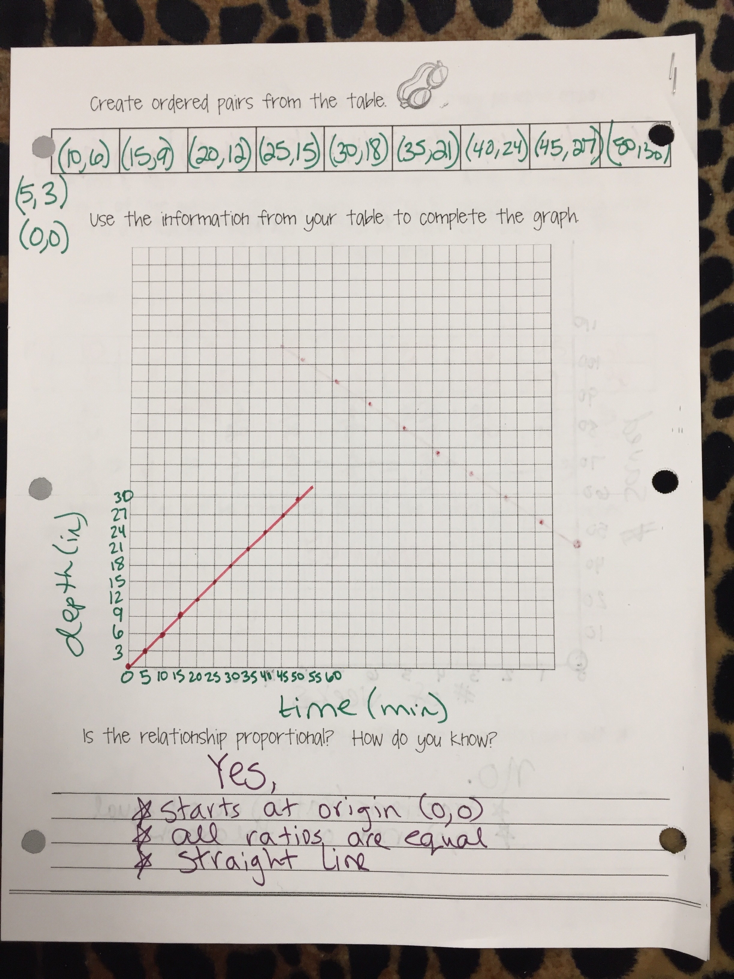 Create ordered pairs from the table.
(10,6) (15,9) (20,12) (25,15) (30,18) (35,21) (40,24) (45,27) (50,30)
(5,3)
(0,0)
Use the information from your table to complete the graph
30
27
24
21
18
15
12
9
6
3
depth (in)
0 5 10 15 20 25 30 35 40 45 50 55 60
time (min)
Is the relationship proportional? How do you know?
Yes,
* starts at origin (0,0)
* all ratios are equal
* straight line